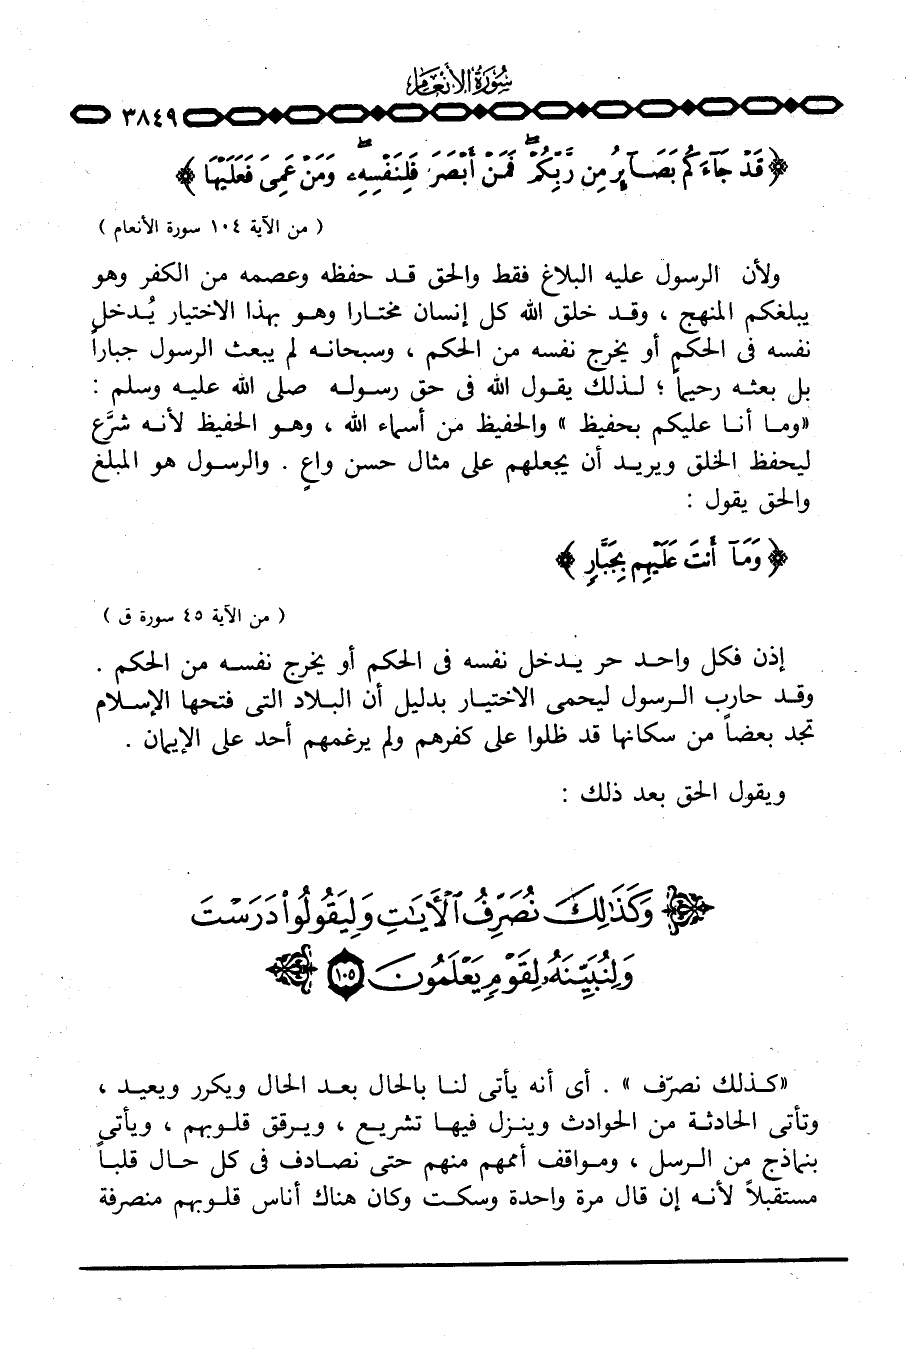 سُورَةُ الأَنْعَامِ
٣٨٤٩
﴿ قَدْ جَآءَكُم بَصَآئِرُ مِن رَّبِّكُمْ ۖ فَمَنْ أَبْصَرَ فَلِنَفْسِهِۦ ۖ وَمَنْ عَمِىَ فَعَلَيْهَا ﴾
( من الآية ١٠٤ سورة الأنعام )
ولأن الرسول عليه البلاغ فقط والحق قد حفظه وعصمه من الكفر وهو
يبلغكم المنهج ، وقد خلق الله كل إنسان مختارا وهو بهذا الاختيار يُدخل
نفسه فى الحكم أو يخرج نفسه من الحكم ، وسبحانه لم يبعث الرسول جباراً
بل بعثه رحيماً ؛ لذلك يقول الله فى حق رسوله صلى الله عليه وسلم :
«وما أنا عليكم بحفيظ » والحفيظ من أسماء الله ، وهو الحفيظ لأنه شرَّع
ليحفظ الخلق ويريد أن يجعلهم على مثال حسن واعٍ . والرسول هو المبلغ
والحق يقول :
﴿ وَمَآ أَنتَ عَلَيْهِم بِجَبَّارٍ ﴾
( من الآية ٤٥ سورة ق )
إذن فكل واحد حر يدخل نفسه فى الحكم أو يخرج نفسه من الحكم .
وقد حارب الرسول ليحمى الاختيار بدليل أن البلاد التى فتحها الإسلام
تجد بعضاً من سكانها قد ظلوا على كفرهم ولم يرغمهم أحد على الإيمان .
ويقول الحق بعد ذلك :
﴿ وَكَذَٰلِكَ نُصَرِّفُ ٱلْأَيَٰتِ وَلِيَقُولُوا۟ دَرَسْتَ
وَلِنُبَيِّنَهُۥ لِقَوْمٍ يَعْلَمُونَ ١٠٥ ﴾
«كذلك نصرّف » . أى أنه يأتى لنا بالحال بعد الحال ويكرر ويعيد ،
وتأتى الحادثة من الحوادث وينزل فيها تشريع ، ويرقق قلوبهم ، ويأتى
بنماذج من الرسل ، ومواقف أممهم منهم حتى نصادف فى كل حال قلباً
مستقبلاً لأنه إن قال مرة واحدة وسكت وكان هناك أناس قلوبهم منصرفة